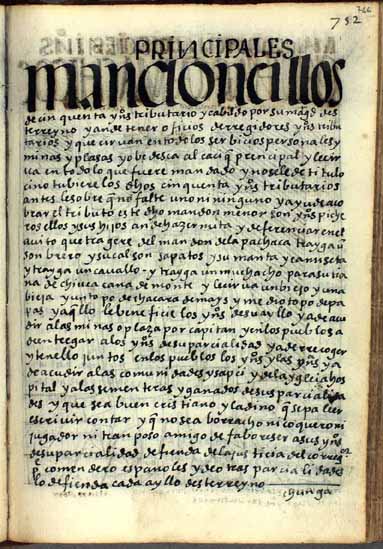 766
752
PRINCIPALES
mancioncillos
de cinquenta yns tributario y cabildo por su magd des
te rreyno y an de tener oficios de rregidores yns tribu
tarios y que cirvan en todo los serbicios personales y
minas y plasas y obedesca al caciq̃ prencipal y le cir
ca en todo lo que fuere mandado y no se le de titulo
ci no tubiere los dhos cinquenta yns tributarios
antes le sobre q̃ no falte uno ni ninguno y ayude a co
brar el tributo este dho mandon menor son yns piche
ros ellos y sus hijos an de hazer mita y deferenciar en el
auito que tragere del mandon de la pachaca trayga un
sonbrero y su calson sapatos y su manta y camiseta
y trayga un cauallo y trayga un muchacho para su tia
na de chiuca cana de monte y le cirua un biejo y una
bieja y un topo de chacara de mays y medio topo de pa
pas y aq̃llo le beneficie los yns de su ayllo y a de acu
dir a las minas o plaza por capitan y en los pueblos a
de entregar a los yns de su parcialidad y a de rrecoger
y tenello juntos en los pueblos los yns y las yns y a
de acudir a las comunidades y sapci y de la yglecia hos
pital y a las sementeras y ganados de sus parcialida
des y que sea buen cristiano y ladino q̃ sepa leer
escriuir contar y q̃ no sea borracho ni coquero ni
jugador ni tranposo amigo de faboreser a sus yns
de su parcialidad defienda de la justicia del corregor
pe comendero españoles y de otras parcialidades
lo defienda cada ayllo deste rreyno
chunga